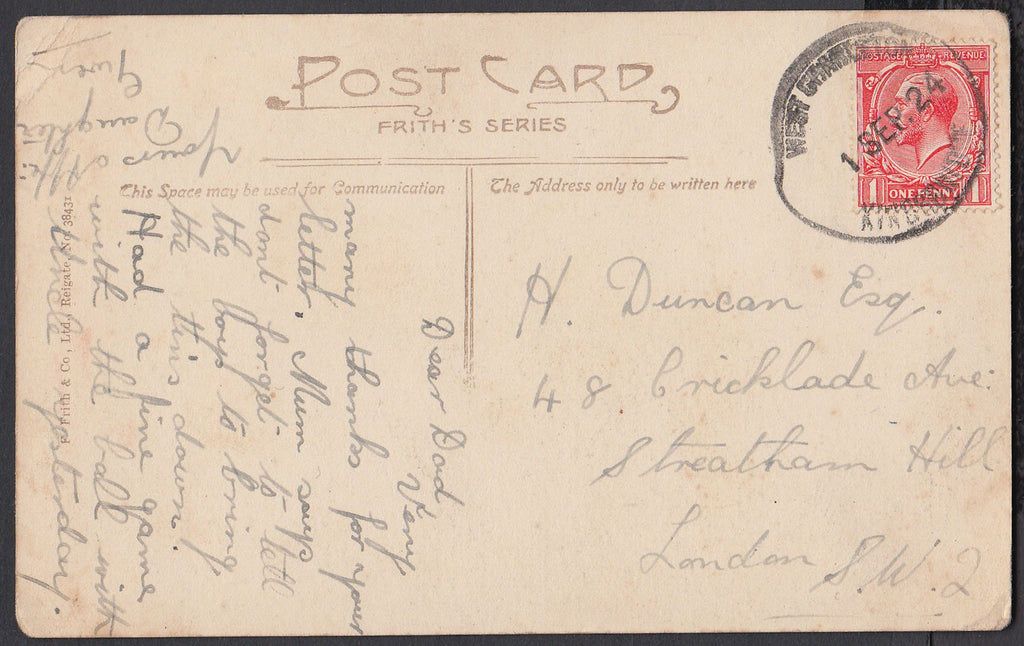 POST CARD
FRITH'S SERIES
This Space may be used for Communication
The Address only to be written here
WEST CHARLETON
1 SEP. 24
KINGSBRIDGE
POSTAGE REVENUE
1 ONE PENNY 1
Dear Dad
Very
many thanks for your
letter, Mum says
dont forget to tell
the boys to bring
the this down.
Had a fine game
with the ball with
yesterday.
Yours
aff:
Daughter
Gwen
F. Frith & Co., Ltd., Reigate, No. 38431
H. Duncan Esq.
48 Cricklade Ave:
Streatham Hill
London S.W.2